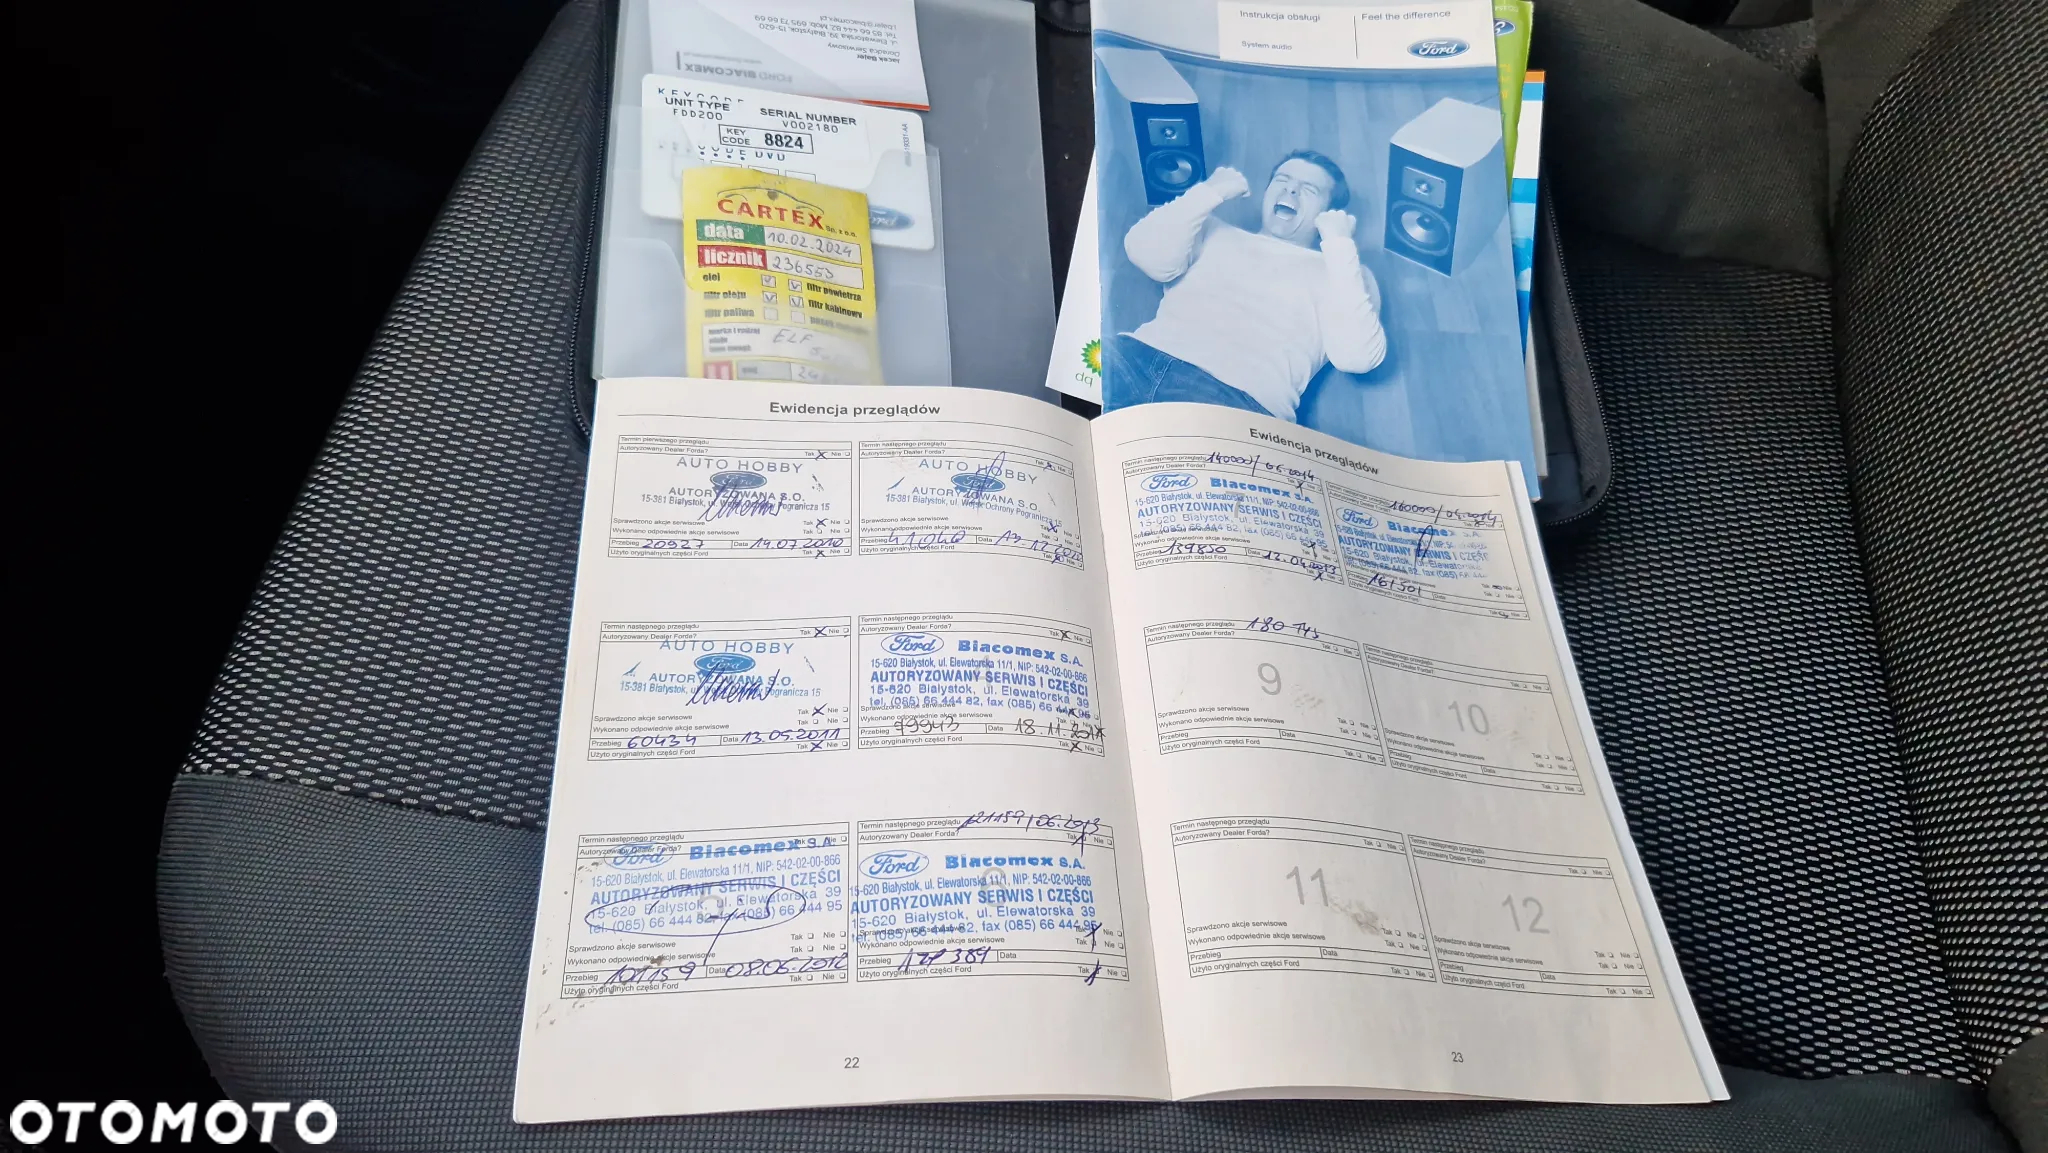 Jacek Bajer
Doradca Serwisowy
ul. Elewatorska 39, Białystok, 15-620
Tel. 85 66 444 82, Mob. 695 73 66 69
j.bajer@biacomex.pl
FORD BIACOMEX
KEYCODE
UNIT TYPE SERIAL NUMBER
FDD200 V002180
KEY CODE 8824
CARTEX Sp. z o.o.
data 10.02.2024
licznik 236553
olej filtr powietrza
filtr oleju filtr kabinowy
filtr paliwa
ELF
Instrukcja obsługi Feel the difference
System audio Ford
bp
Ewidencja przeglądów
Termin pierwszego przeglądu
Autoryzowany Dealer Forda? Tak Nie
AUTO HOBBY
Ford
AUTORYZOWANA S.O.
15-381 Białystok, ul. Pogranicza 15
Sprawdzono akcje serwisowe Tak Nie
Wykonano odpowiednie akcje serwisowe Tak Nie
Przebieg 20927 Data 14.07.2010
Użyto oryginalnych części Ford Tak Nie
Termin następnego przeglądu
Autoryzowany Dealer Forda? Tak Nie
AUTO HOBBY
Ford
AUTORYZOWANA S.O.
15-381 Białystok, ul. Wojsk Ochrony Pogranicza 15
Sprawdzono akcje serwisowe
Wykonano odpowiednie akcje serwisowe Tak Nie
Przebieg Data
Użyto oryginalnych części Ford Tak Nie
Termin następnego przeglądu
Autoryzowany Dealer Forda? Tak Nie
AUTO HOBBY
Ford
AUTORYZOWANA S.O.
15-381 Białystok, ul. Pogranicza 15
Sprawdzono akcje serwisowe Tak Nie
Wykonano odpowiednie akcje serwisowe Tak Nie
Przebieg 60434 Data 13.05.2011
Użyto oryginalnych części Ford Tak Nie
Termin następnego przeglądu
Autoryzowany Dealer Forda? Tak Nie
Ford Biacomex S.A.
15-620 Białystok, ul. Elewatorska 11/1, NIP: 542-02-00-866
AUTORYZOWANY SERWIS I CZĘŚCI
15-620 Białystok, ul. Elewatorska 39
tel. (085) 66 444 82, fax (085) 66 444 95
Sprawdzono akcje serwisowe
Wykonano odpowiednie akcje serwisowe Tak Nie
Przebieg 79943 Data 18.11.2011
Użyto oryginalnych części Ford Tak Nie
Termin następnego przeglądu
Autoryzowany Dealer Forda? Tak Nie
Ford Biacomex S.A.
15-620 Białystok, ul. Elewatorska 11/1, NIP: 542-02-00-866
AUTORYZOWANY SERWIS I CZĘŚCI
15-620 Białystok, ul. Elewatorska 39
tel. (085) 66 444 82, (085) 66 444 95
Sprawdzono akcje serwisowe Tak Nie
Wykonano odpowiednie akcje serwisowe Tak Nie
Przebieg 101159 Data 08.06.2012
Użyto oryginalnych części Ford Tak Nie
Termin następnego przeglądu 121159/06.2013
Autoryzowany Dealer Forda? Tak Nie
Ford Biacomex S.A.
15-620 Białystok, ul. Elewatorska 11/1, NIP: 542-02-00-866
AUTORYZOWANY SERWIS I CZĘŚCI
15-620 Białystok, ul. Elewatorska 39
tel. (085) 66 444 82, fax (085) 66 444 95
6
Sprawdzono akcje serwisowe
Wykonano odpowiednie akcje serwisowe Tak Nie
Przebieg Data
Użyto oryginalnych części Ford Tak Nie
22
Ewidencja przeglądów
Termin następnego przeglądu 140000/06.2014
Autoryzowany Dealer Forda? Tak Nie
Ford Biacomex S.A.
15-620 Białystok, ul. Elewatorska 11/1, NIP: 542-02-00-866
AUTORYZOWANY SERWIS I CZĘŚCI
15-620 Białystok, ul. Elewatorska 39
tel. (085) 66 444 82, fax (085) 66 444 95
Przebieg 139850 Data 12.04.2013
Użyto oryginalnych części Ford Tak Nie
Termin następnego przeglądu 160000/04.2014
Ford Biacomex S.A.
AUTORYZOWANY SERWIS I CZĘŚĆ
15-620 Białystok, ul. Elewatorska
tel. (085) 66 444 82, fax (085)
Przebieg 161501 Data
Użyto oryginalnych części Ford Tak Nie
Termin następnego przeglądu 180 745
Autoryzowany Dealer Forda? Tak Nie
9
Sprawdzono akcje serwisowe
Wykonano odpowiednie akcje serwisowe Tak Nie
Przebieg Data Tak Nie
Użyto oryginalnych części Ford Tak Nie
Termin następnego przeglądu
Autoryzowany Dealer Forda? Tak Nie
10
Sprawdzono akcje serwisowe
Wykonano odpowiednie akcje serwisowe Tak Nie
Przebieg Data Tak Nie
Użyto oryginalnych części Ford Tak Nie
Termin następnego przeglądu
Autoryzowany Dealer Forda? Tak Nie
11
Sprawdzono akcje serwisowe Tak Nie
Wykonano odpowiednie akcje serwisowe Tak Nie
Przebieg Data
Użyto oryginalnych części Ford Tak Nie
Termin następnego przeglądu
Autoryzowany Dealer Forda? Tak Nie
12
Sprawdzono akcje serwisowe
Wykonano odpowiednie akcje serwisowe Tak Nie
Przebieg Data Tak Nie
Użyto oryginalnych części Ford Tak Nie
23
OTOMOTO